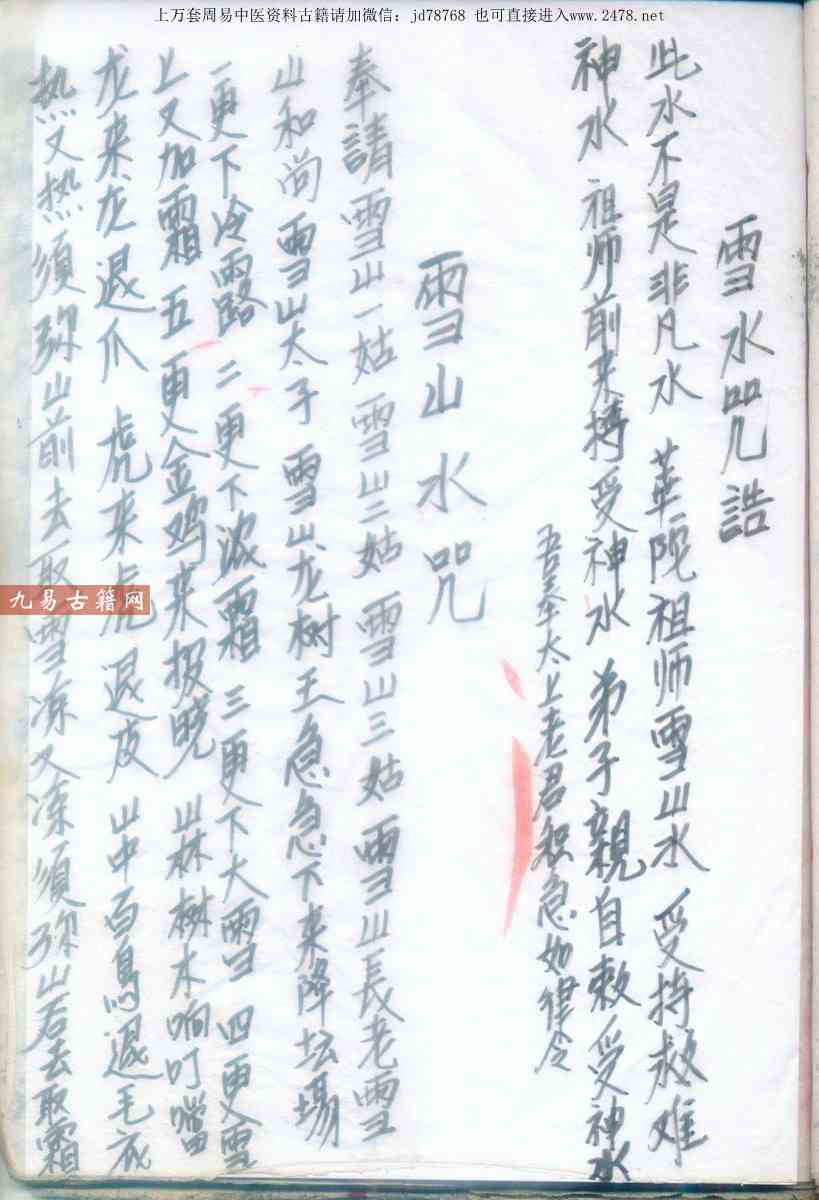 上万套周易中医资料古籍请加微信：jd78768 也可直接进入www.2478.net
雪水咒誥
此水不是非凡水 華陀祖师雪山水 受持救难
神水 祖师前来 受神水 弟子親自敕受神水
吾奉太上老君 急如律令
雪山水咒
奉請雪山一姑 雪山二姑 雪山三姑 雪山長老雪
山和尚 雪山太子 雪山龙树王急急下来降坛場
一更下冷露 二更下浓霜 三更下大雪 四更雪
上又加霜 五更金鸡来报晓 山林樹木响叮噹
龙来龙退爪 虎来虎退皮 山中百鳥退毛衣
热又热須弥山前去取雪冻又冻須弥山后去取霜
九易古籍网